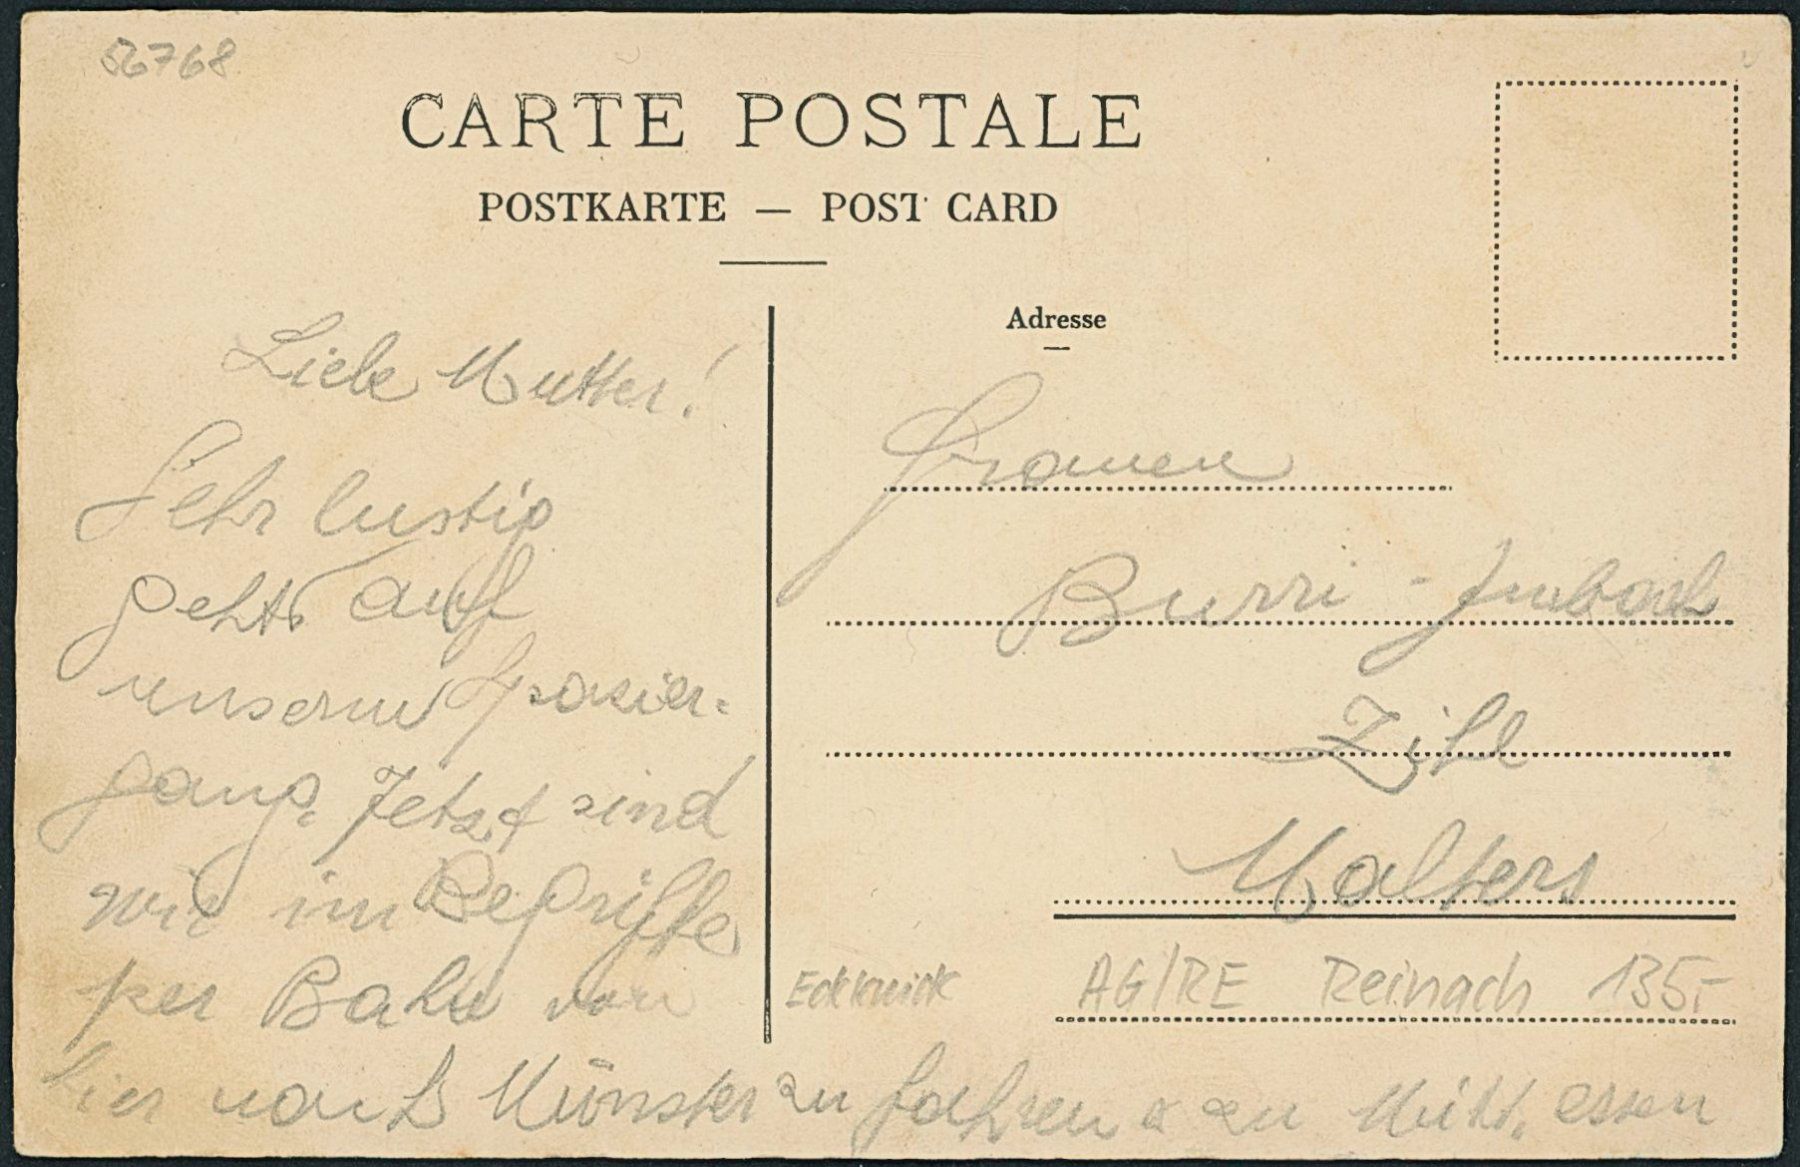 56768
CARTE POSTALE
POSTKARTE — POST CARD
Adresse
Liebe Mutter!
Sehr lustig
gehts auf
unserm Spazier-
gang. Jetzt sind
wir im Begriffe
per Bahn von
hier nach Münster zu fahren & zu Mitt. essen
Frauen
Burri-Imbach
Zihl
Malters
Eckknick AG/RE Reinach 135.-